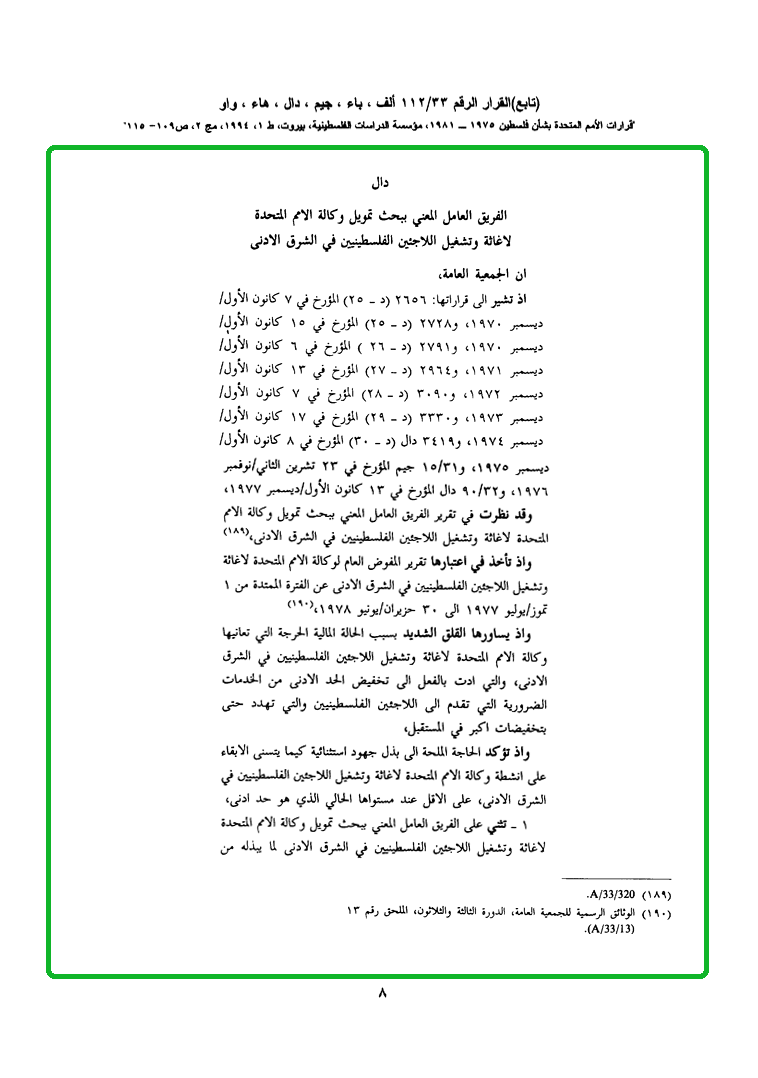 (تابع)القرار الرقم ١١٢/٣٣ ألف ، باء ، جيم ، دال ، هاء ، واو
"قرارات الأمم المتحدة بشأن فلسطين ١٩٧٥ – ١٩٨١، مؤسسة الدراسات الفلسطينية، بيروت، ط ١، ١٩٩٤، مج ٢، ص١٠٩– ١١٥"
دال
الفريق العامل المعني ببحث تمويل وكالة الامم المتحدة
لاغاثة وتشغيل اللاجئين الفلسطينيين في الشرق الادنى
ان الجمعية العامة،
اذ تشير الى قراراتها: ٢٦٥٦ (د – ٢٥) المؤرخ في ٧ كانون الأول/
ديسمبر ١٩٧٠، و٢٧٢٨ (د – ٢٥) المؤرخ في ١٥ كانون الأول/
ديسمبر ١٩٧٠، و٢٧٩١ (د – ٢٦ ) المؤرخ في ٦ كانون الأول/
ديسمبر ١٩٧١، و٢٩٦٤ (د – ٢٧) المؤرخ في ١٣ كانون الأول/
ديسمبر ١٩٧٢، و٣٠٩٠ (د – ٢٨) المؤرخ في ٧ كانون الأول/
ديسمبر ١٩٧٣، و٣٣٣٠ (د – ٢٩) المؤرخ في ١٧ كانون الأول/
ديسمبر ١٩٧٤، و٣٤١٩ دال (د – ٣٠) المؤرخ في ٨ كانون الأول/
ديسمبر ١٩٧٥، و١٥/٣١ جيم المؤرخ في ٢٣ تشرين الثاني/نوفمبر
١٩٧٦، و٩٠/٣٢ دال المؤرخ في ١٣ كانون الأول/ديسمبر ١٩٧٧،
وقد نظرت في تقرير الفريق العامل المعني ببحث تمويل وكالة الامم
المتحدة لاغاثة وتشغيل اللاجئين الفلسطينيين في الشرق الادنى،(١٨٩)
واذ تأخذ في اعتبارها تقرير المفوض العام لوكالة الامم المتحدة لاغاثة
وتشغيل اللاجئين الفلسطينيين في الشرق الادنى عن الفترة الممتدة من ١
تموز/يوليو ١٩٧٧ الى ٣٠ حزيران/يونيو ١٩٧٨،(١٩٠)
واذ يساورها القلق الشديد بسبب الحالة المالية الحرجة التي تعانيها
وكالة الامم المتحدة لاغاثة وتشغيل اللاجئين الفلسطينيين في الشرق
الادنى، والتي ادت بالفعل الى تخفيض الحد الادنى من الخدمات
الضرورية التي تقدم الى اللاجئين الفلسطينيين والتي تهدد حتى
بتخفيضات اكبر في المستقبل،
واذ تؤكد الحاجة الملحة الى بذل جهود استثنائية كيما يتسنى الابقاء
على انشطة وكالة الامم المتحدة لاغاثة وتشغيل اللاجئين الفلسطينيين في
الشرق الادنى، على الاقل عند مستواها الحالي الذي هو حد ادنى،
١ – تثني على الفريق العامل المعني ببحث تمويل وكالة الامم المتحدة
لاغاثة وتشغيل اللاجئين الفلسطينيين في الشرق الادنى لما يبذله من
(١٨٩) A/33/320.
(١٩٠) الوثائق الرسمية للجمعية العامة، الدورة الثالثة والثلاثون، الملحق رقم ١٣
(A/33/13).
٨